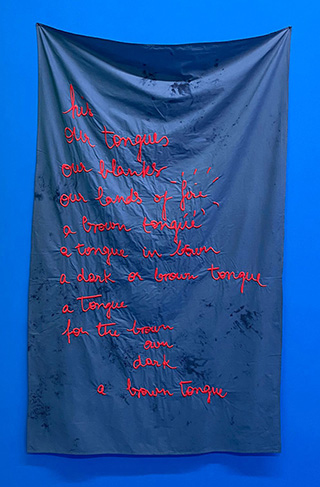 his
our tongues
our blanks
our lands of fire
a brown tongue
a tongue in brown
a dark or brown tongue
a tongue
for the brown
dark
a brown tongue